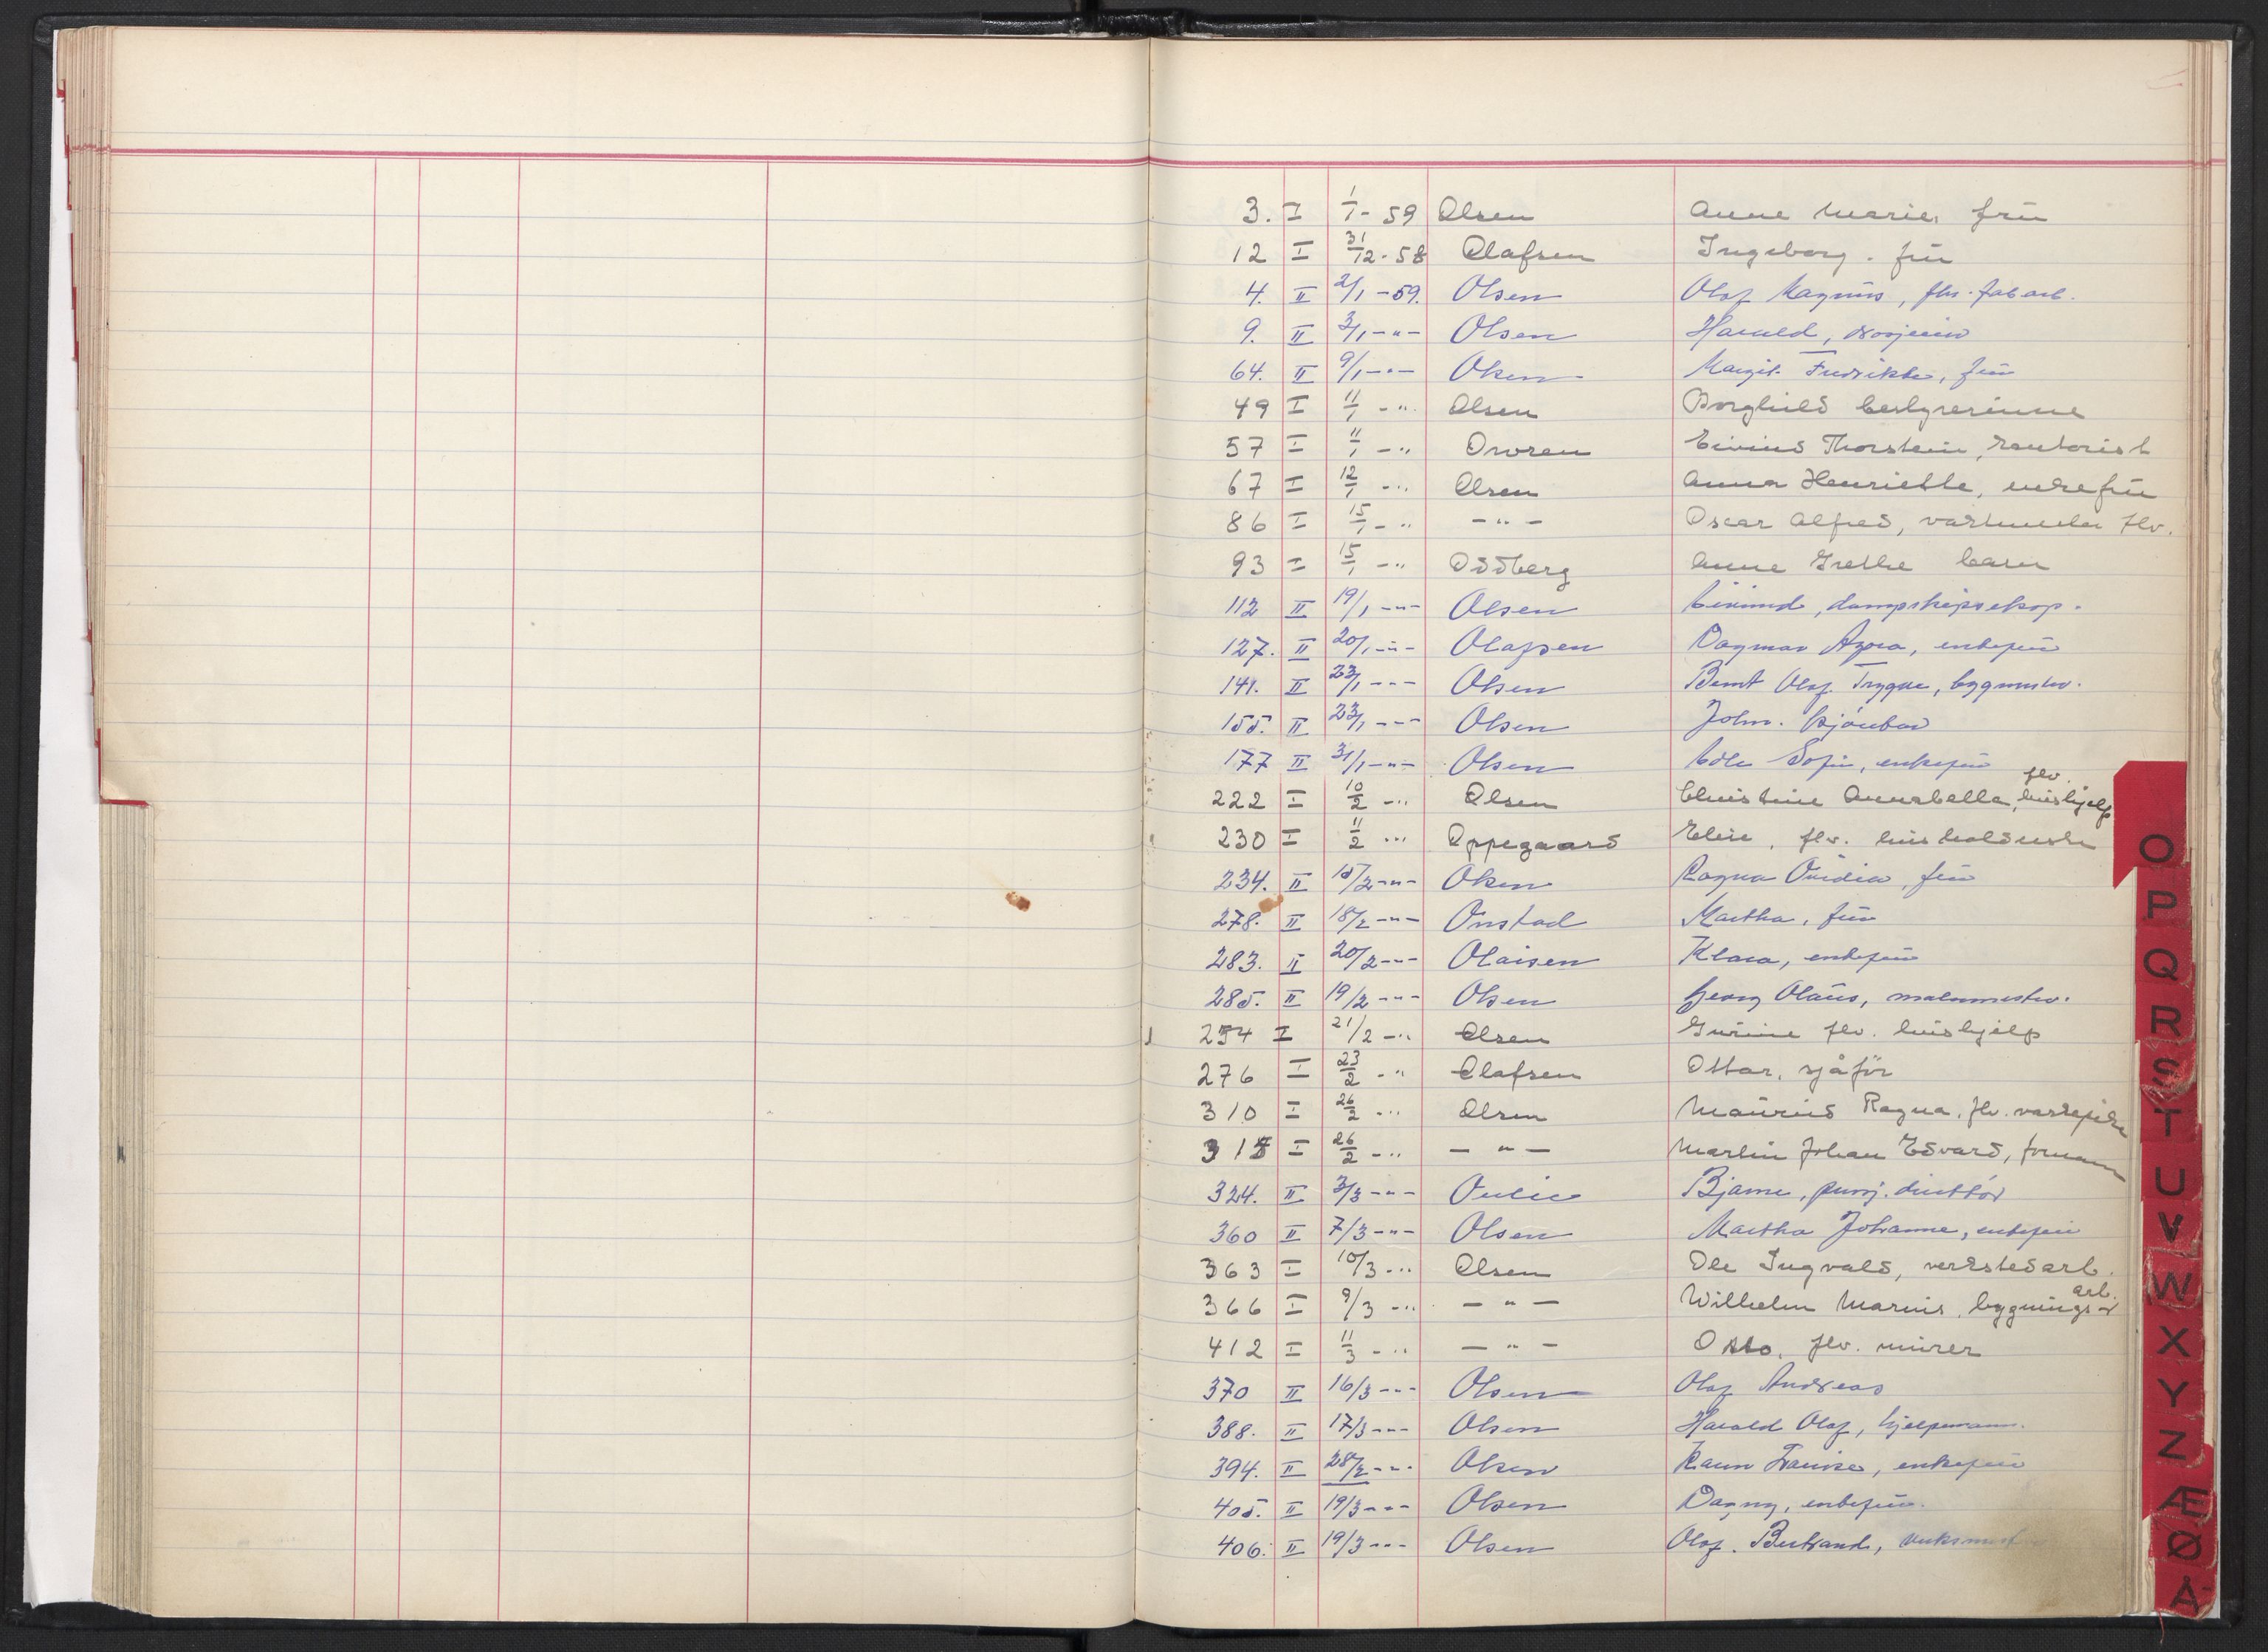 3. I 1/1 - 59 Olsen Anne Marie, frü
12 I 31/12 - 58 Olafsen Ingeborg. frü
4. II 2/1 - 59. Olsen Olaf Magnus, fhv. fab arb.
9. II 3/1 - " - Olsen Harald,
64. II 9/1 - " - Olsen Margit Fredrikke, frü
49 I 11/1 - " Olsen Borghild bestyrerinne
57 I 11/1 - " Ovren Eivind Thorstein, kontorist
67 I 12/1 - " Olsen Anna Henriette, enkefrü
86 I 15/1 - " - " - Oscar Alfred, vaktmester fhv.
93 I 15/1 - " Oddberg Anne Grethe barn
112 II 19/1 - " - Olsen Eivind, dampskipseksp.
127. II 20/1 - " - Olafsen Dagmar Azora, enkefrü
141. II 23/1 - " - Olsen Bernt Olaf Trygve, bygmester.
155. II 23/1 - " - Olsen John.
177 II 31/1 - " - Olsen Edle Sofie, enkefrü
222 I 10/2 - " Olsen Christine Annabella, fhv. hüshjelp
230 I 11/2 - " Oppegaard Elise, fhv. hüsholderske
234. II 15/2 - " - Olsen Ragna Ovidia, frü
278. II 18/2 - " - Onstad Martha, frü
283. II 20/2 - " - Olaisen Klara, enkefrü
285. II 19/2 - " - Olsen Georg Olaüs, malermester.
254 I 21/2 - " Olsen Gurine fhv. hüshjelp
276 I 23/2 - " Olafsen Ottar, sjåför
310 I 26/2 - " Olsen Ragna, fhv. vaskepike
315 I 26/2 - " - " - Martin Johan Edvard, formann
324. II 3/3 - " - Bjarne,
360 II 7/3 - " - Olsen Martha Johanne, enkefrü
363 I 10/3 - " Olsen Ole Ingvald, verkstedarb.
366 I 9/3 - " - " - Wilhelm Marius, bygningsarb.
412 I 11/3 - " - " - Otto, fhv. mürer
370 II 16/3 - " - Olsen Olaf Andreas
388. II 17/3 - " - Olsen Harald Olaf, hjelpemann.
394. II 28/2 - " - Olsen Karen enkefrü
405. II 19/3 - " - Olsen Dagny, enkefrü.
406. II 19/3 - " - Olsen Olaf. Bertrand,
O
P
Q
R
S
T
U
V
W
X
Y
Z
Æ
Ø
Å